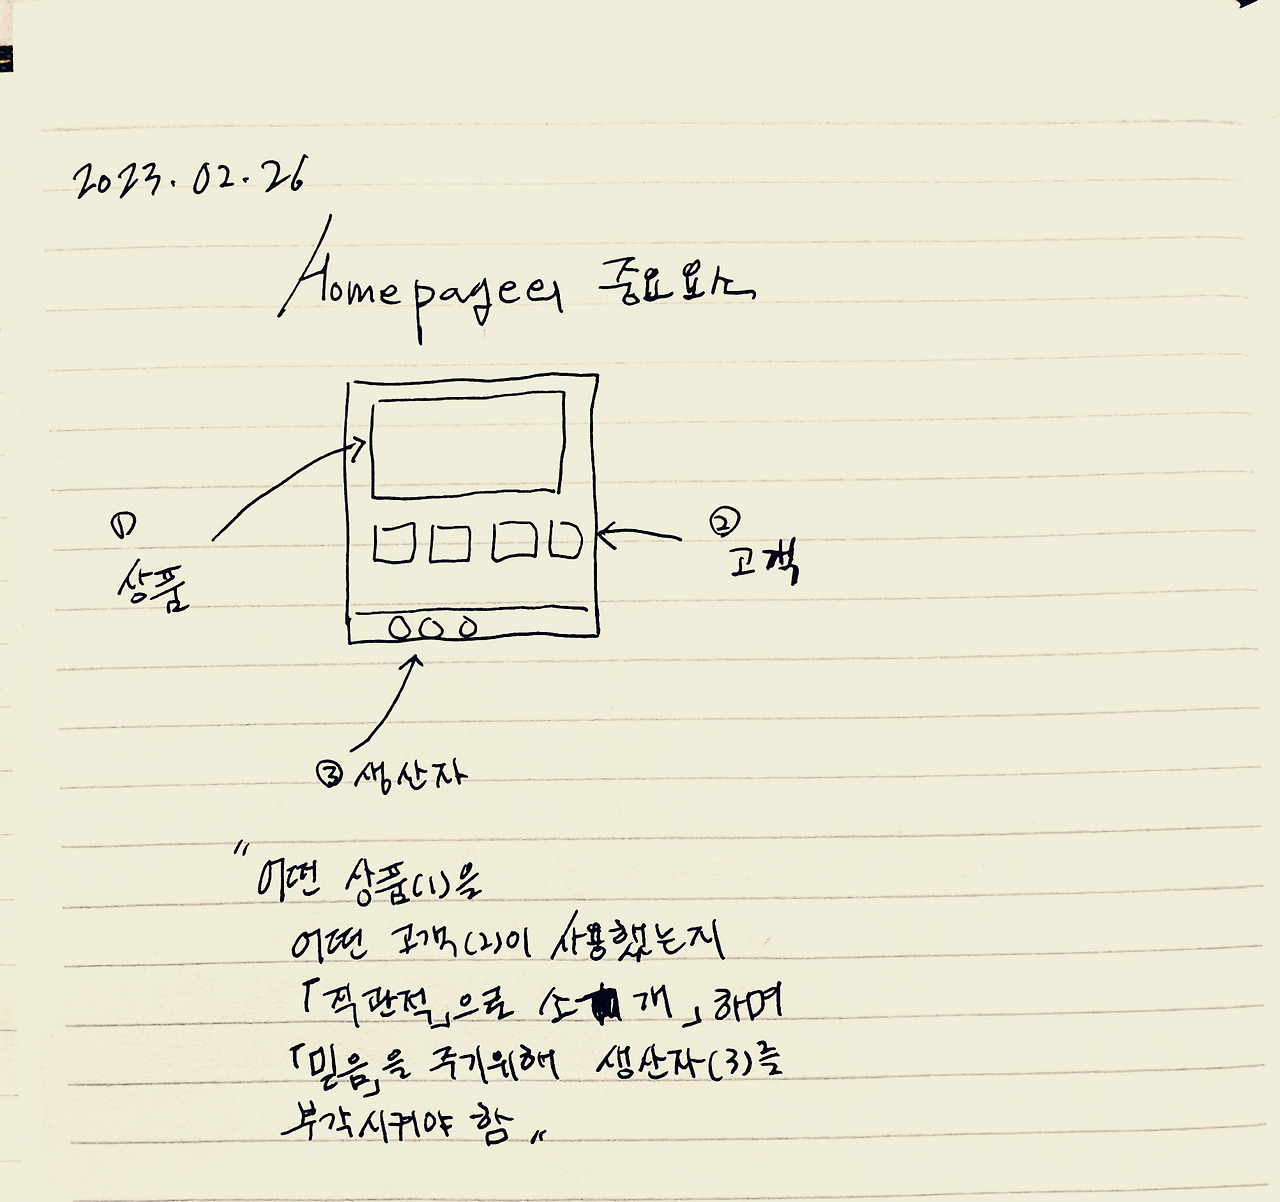 2023.02.26
Homepage의 중요요소
①
상품
②
고객
③ 생산자
"어떤 상품(1)을
어떤 고객(2)이 사용했는지
「직관적」으로 소개」하며
「믿음」을 주기위해 생산자(3)를
부각시켜야 함"